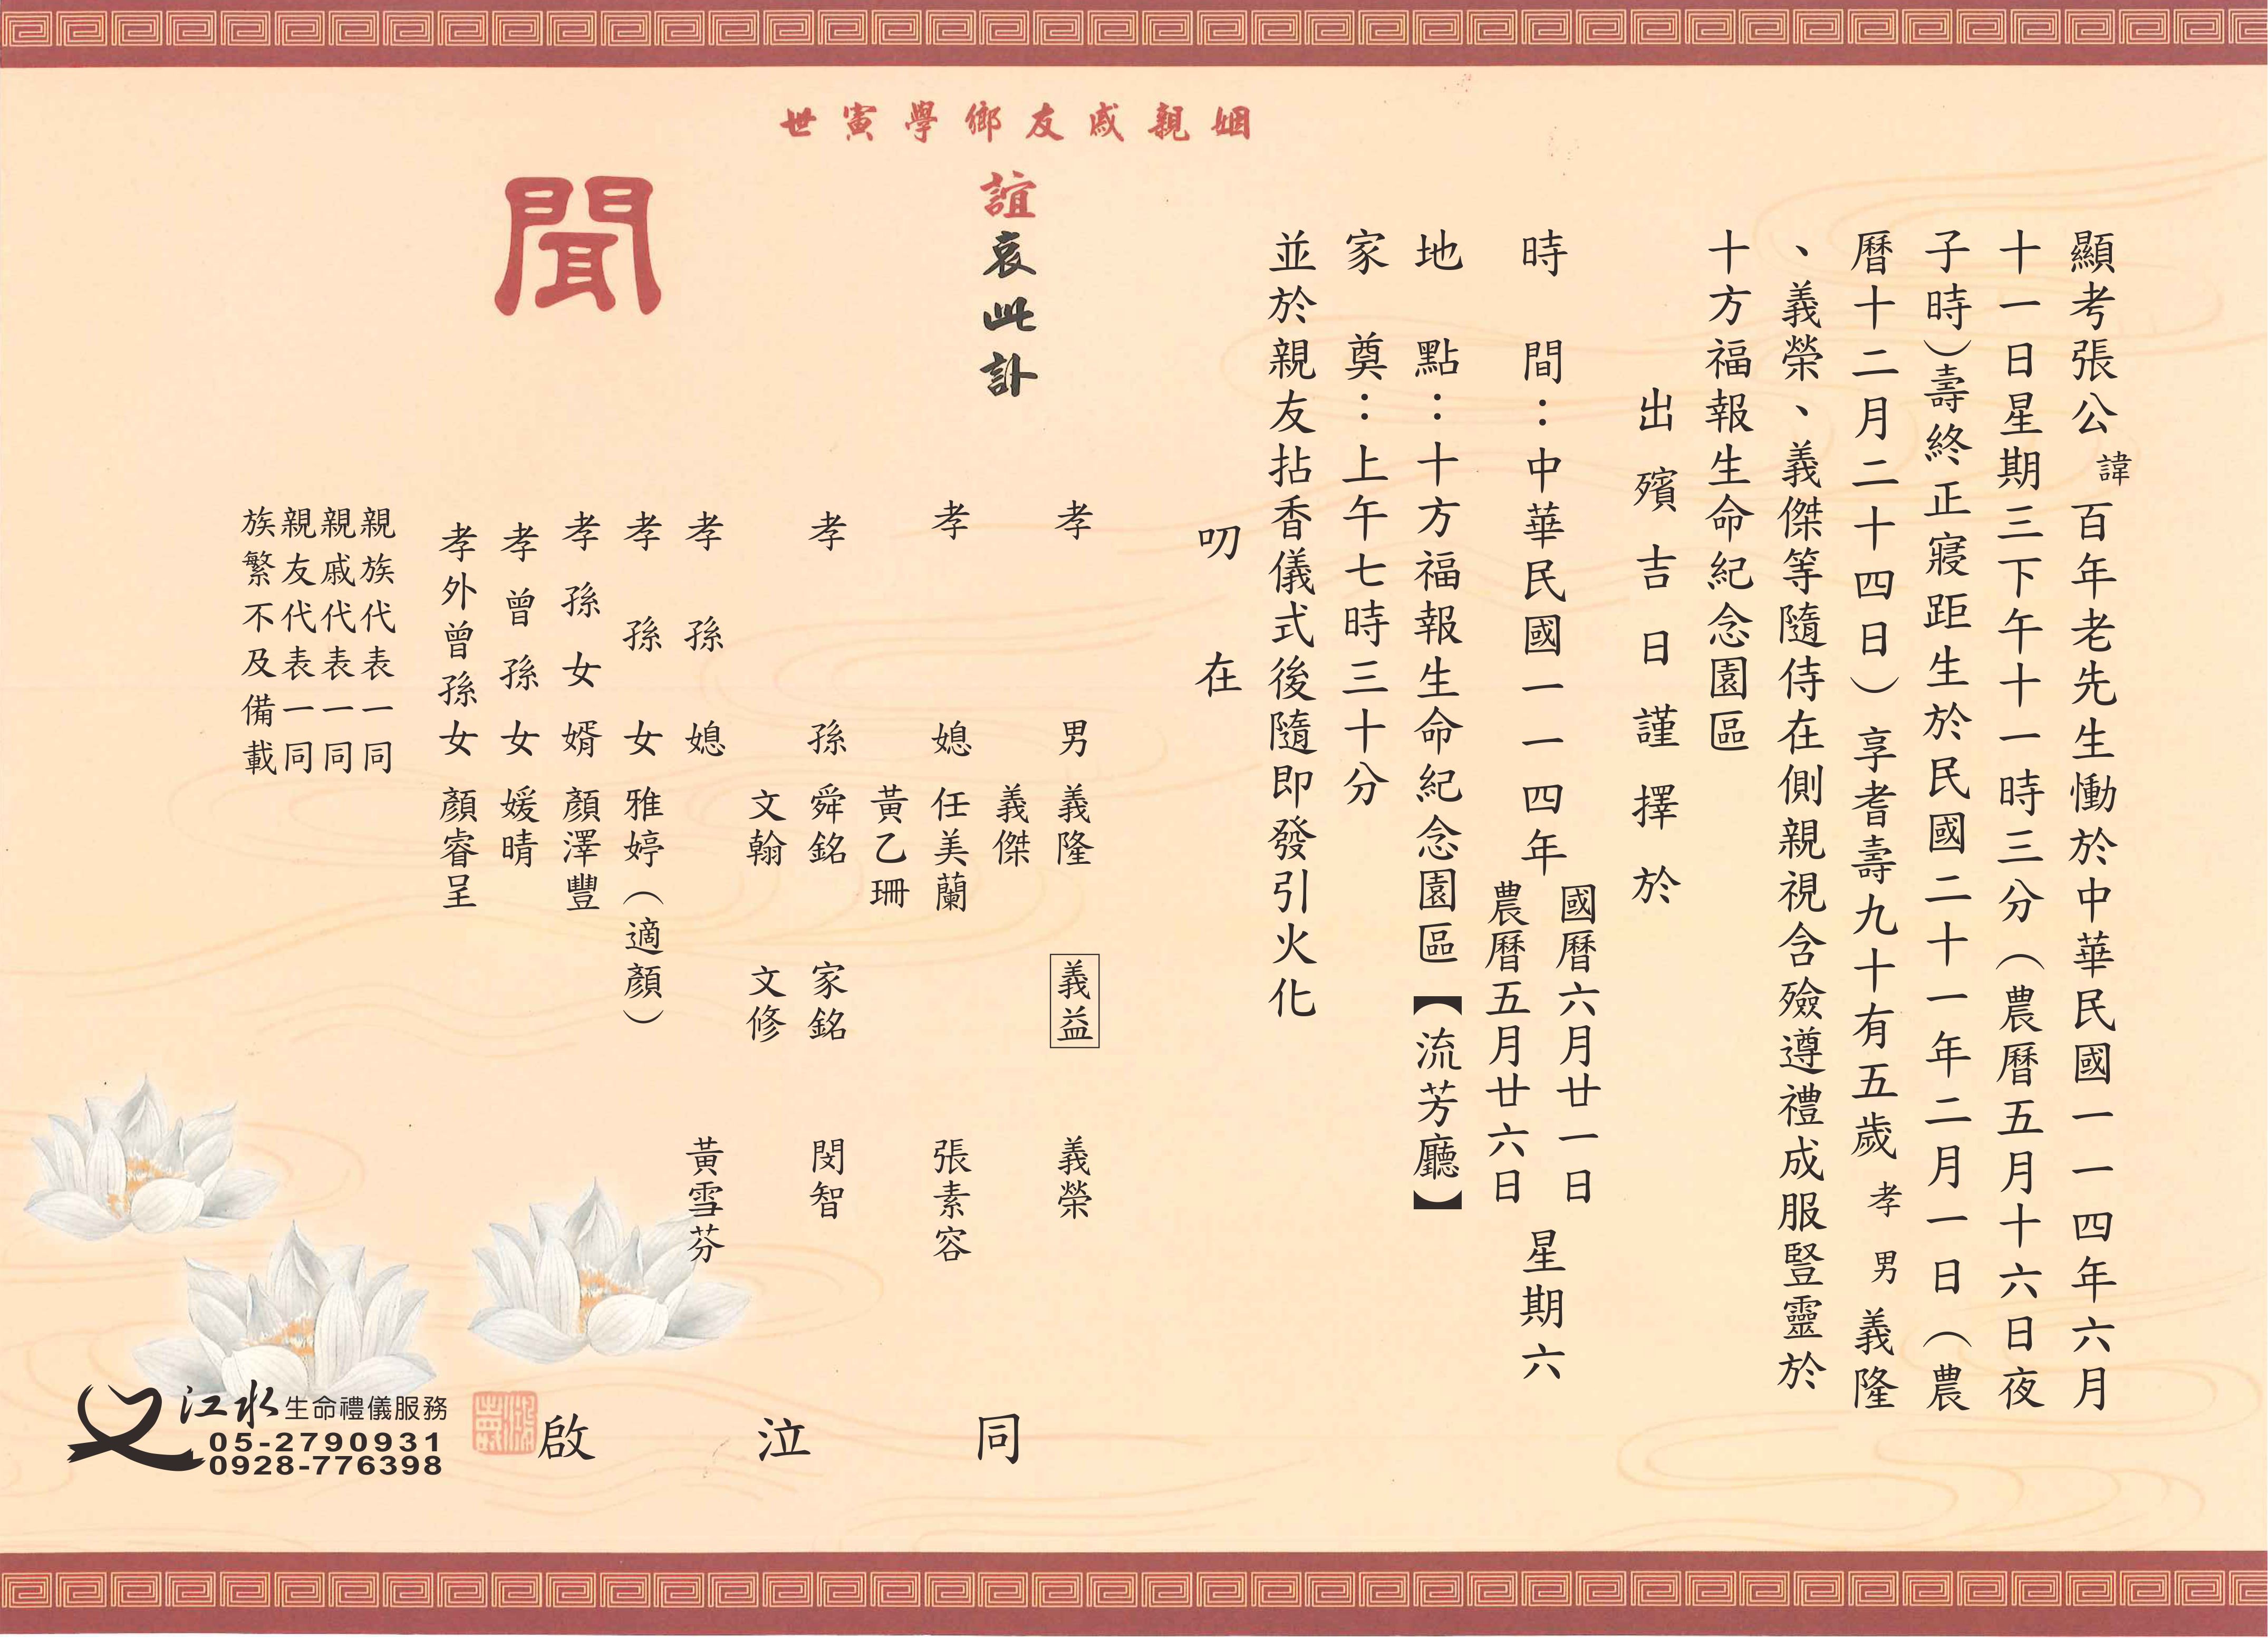 顯考張公諱百年老先生慟於中華民國一一四年六月
十一日星期三下午十一時三分（農曆五月十六日夜
子時）壽終正寢距生於民國二十一年二月一日（農
曆十二月二十四日）享耆壽九十有五歲孝男義隆
、義榮、義傑等隨侍在側親視含殮遵禮成服豎靈於
十方福報生命紀念園區
出殯吉日謹擇於
時間：中華民國一一四年國曆六月廿一日農曆五月廿六日星期六
地點：十方福報生命紀念園區【流芳廳】
家奠：上午七時三十分
並於親友拈香儀式後隨即發引火化
叨在
姻親戚友鄉學寅世
誼哀此訃
聞
孝男義隆 義益 義榮
義傑
孝媳任美蘭 張素容
黃乙珊
孝孫舜銘 家銘 閔智
文翰 文修
孝孫媳 黃雪芬
孝孫女雅婷（適顏）
孝孫女婿顏澤豐
孝曾孫女媛晴
孝外曾孫女顏睿呈
親族代表一同
親戚代表一同
親友代表一同
族繁不及備載
同泣啟
江水生命禮儀服務
05-2790931
0928-776398